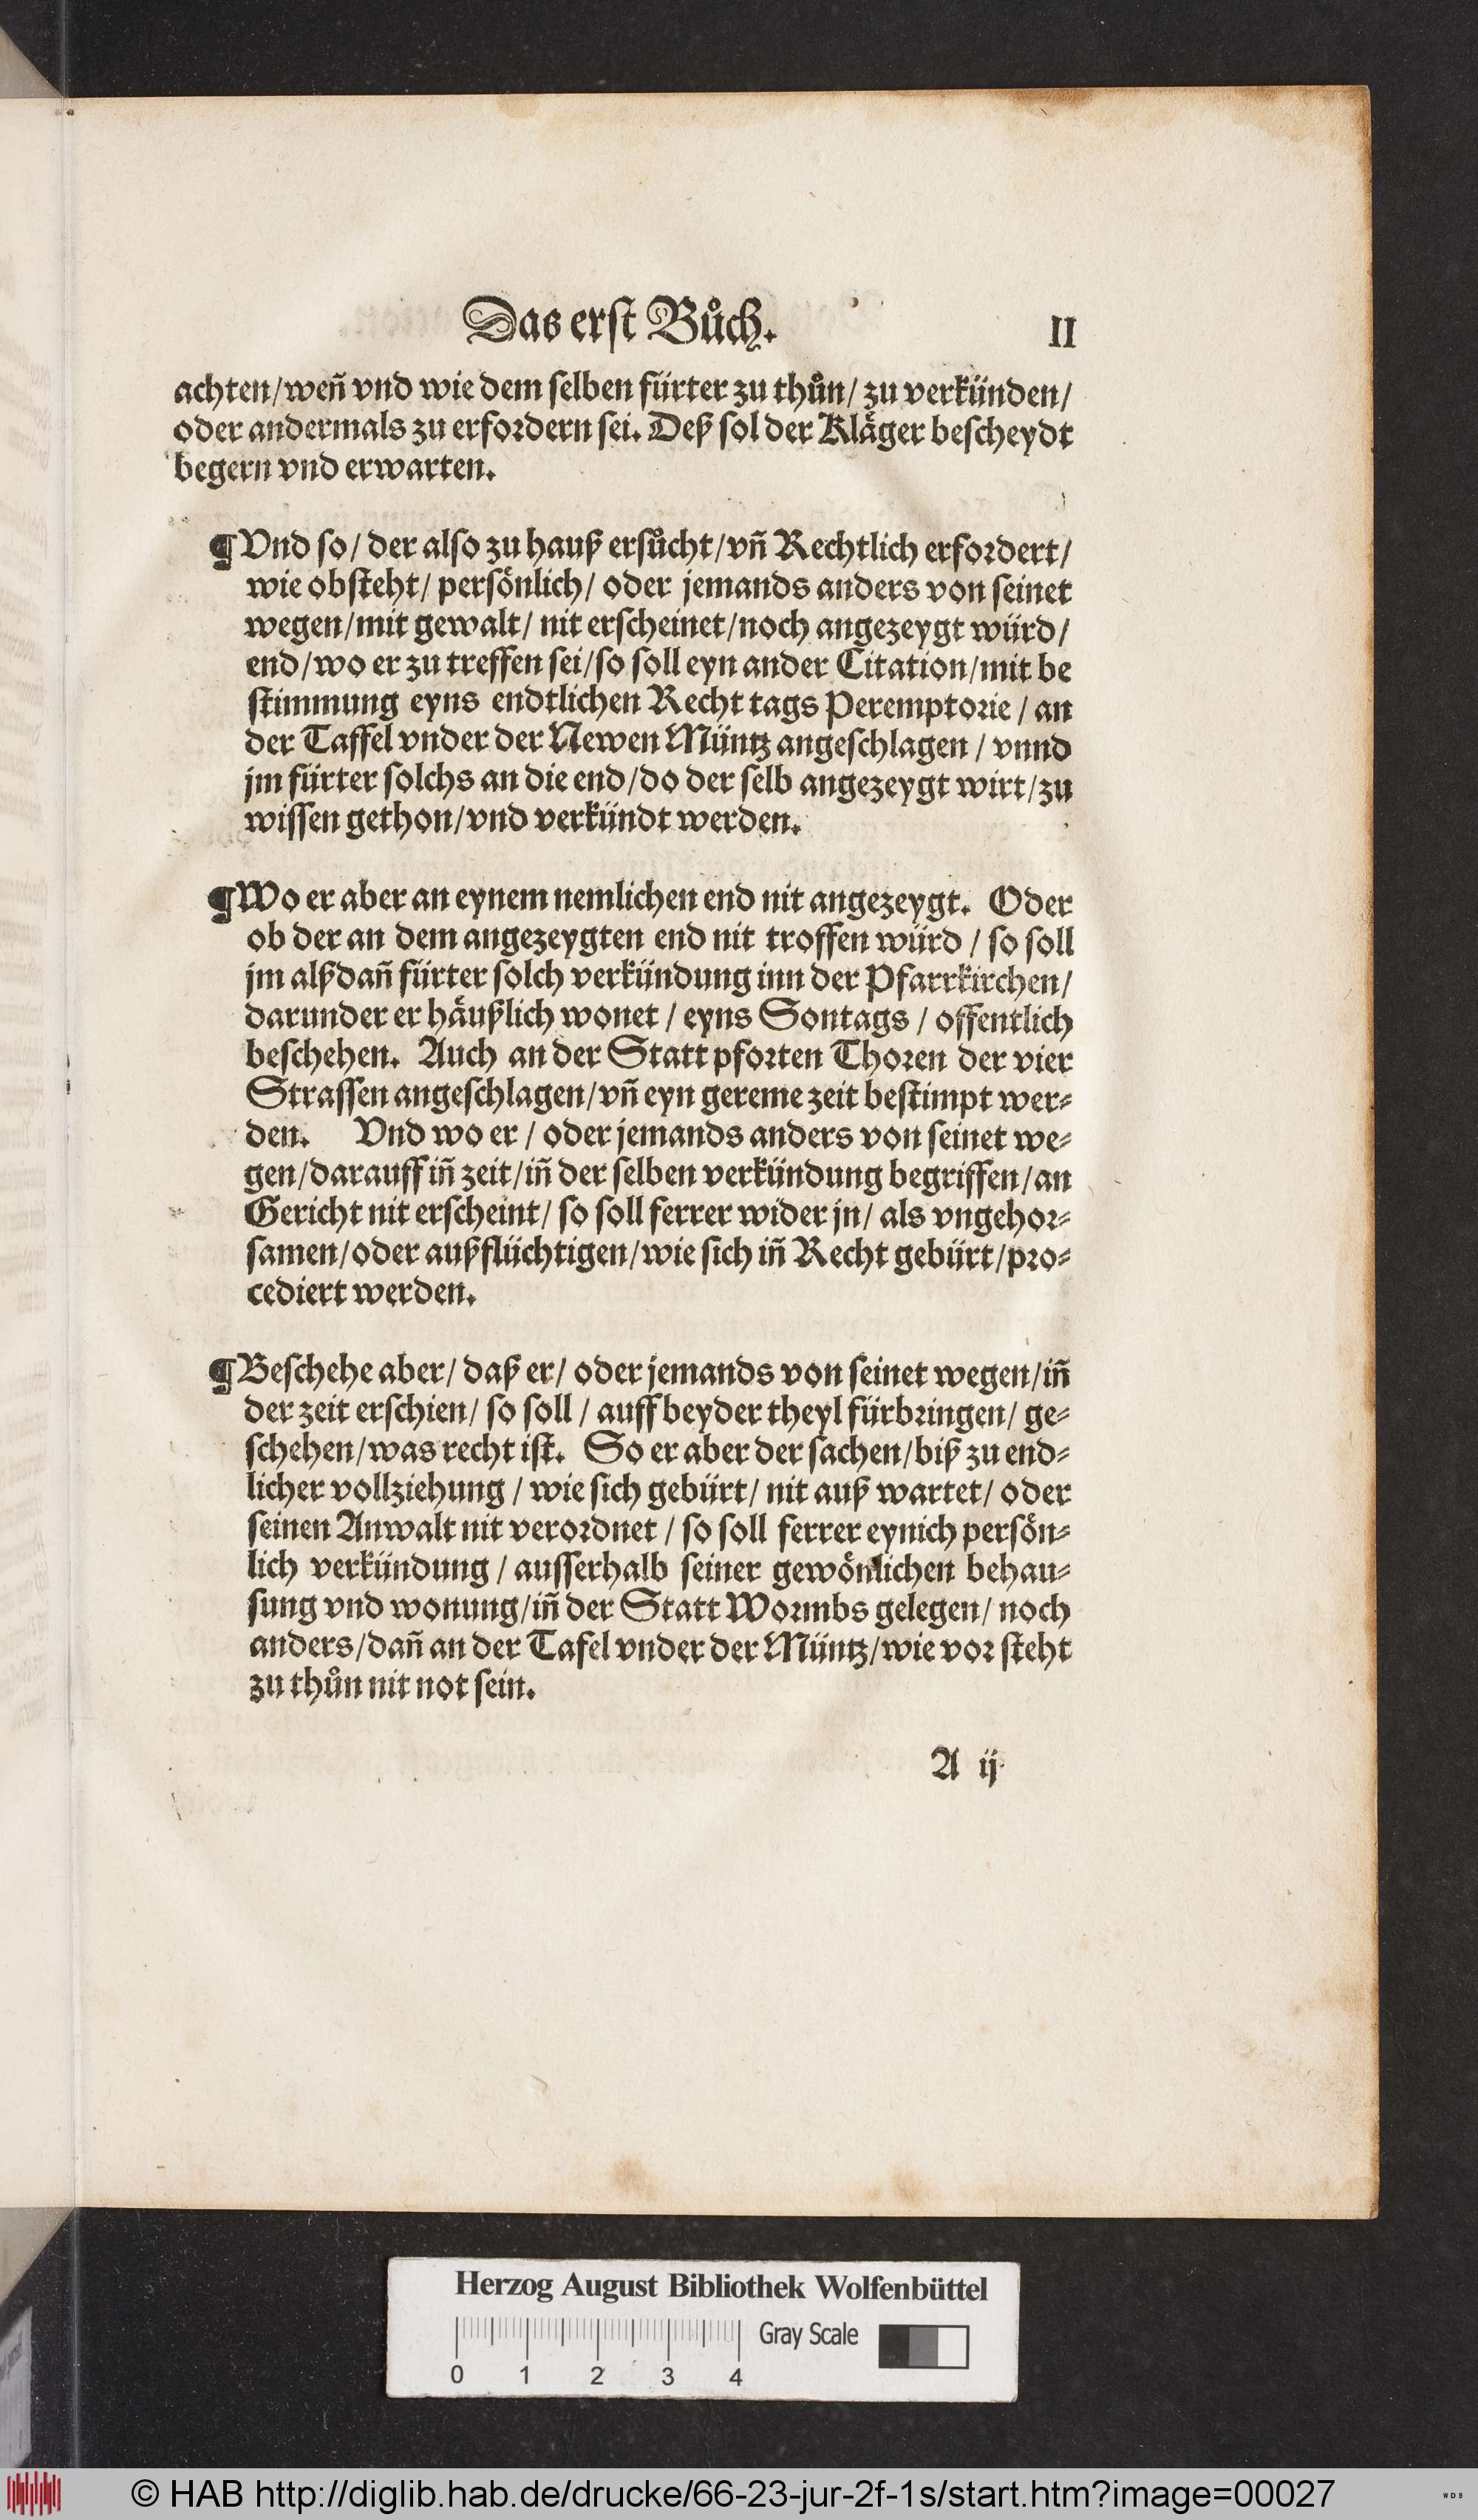 Das erst Bůch.
II
achten/wen̄ vnd wie dem selben fürter zu thůn/ zu verkünden/
oder andermals zu erfordern sei. Deß sol der Kläger bescheydt
begern vnd erwarten.
¶Vnd so/ der also zu hauß ersůcht/vn̄ Rechtlich erfordert/
wie obsteht/ persönlich/ oder jemands anders von seinet
wegen/mit gewalt/ nit erscheinet/noch angezeygt würd/
end/wo er zu treffen sei/so soll eyn ander Citation/mit be
stimmung eyns endtlichen Recht tags Peremptorie / an
der Taffel vnder der Newen Müntz angeschlagen / vnnd
jm fürter solchs an die end/do der selb angezeygt wirt/zu
wissen gethon/vnd verkündt werden.
¶Wo er aber an eynem nemlichen end nit angezeygt. Oder
ob der an dem angezeygten end nit troffen würd / so soll
jm alßdan̄ fürter solch verkündung inn der Pfarrkirchen/
darunder er häußlich wonet / eyns Sontags / offentlich
beschehen. Auch an der Statt pforten Thoren der vier
Strassen angeschlagen/vn̄ eyn gereme zeit bestimpt wer⸗
den. Vnd wo er / oder jemands anders von seinet we⸗
gen/darauff in̄ zeit/in̄ der selben verkündung begriffen/an
Gericht nit erscheint/ so soll ferrer wider jn/ als vngehor⸗
samen/oder außflüchtigen/wie sich in̄ Recht gebürt/pro⸗
cediert werden.
¶Beschehe aber/ daß er/ oder jemands von seinet wegen/in̄
der zeit erschien/ so soll / auff beyder theyl fürbringen/ ge⸗
schehen/was recht ist. So er aber der sachen/biß zu end⸗
licher vollziehung / wie sich gebürt/ nit auß wartet/ oder
seinen Anwalt nit verordnet / so soll ferrer eynich persön⸗
lich verkündung / ausserhalb seiner gewönlichen behau⸗
sung vnd wonung/in̄ der Statt Wormbs gelegen/ noch
anders/dan̄ an der Tafel vnder der Müntz/wie vor steht
zu thůn nit not sein.
A ij
Herzog August Bibliothek Wolfenbüttel
Gray Scale
0 1 2 3 4
© HAB http://diglib.hab.de/drucke/66-23-jur-2f-1s/start.htm?image=00027
WDB